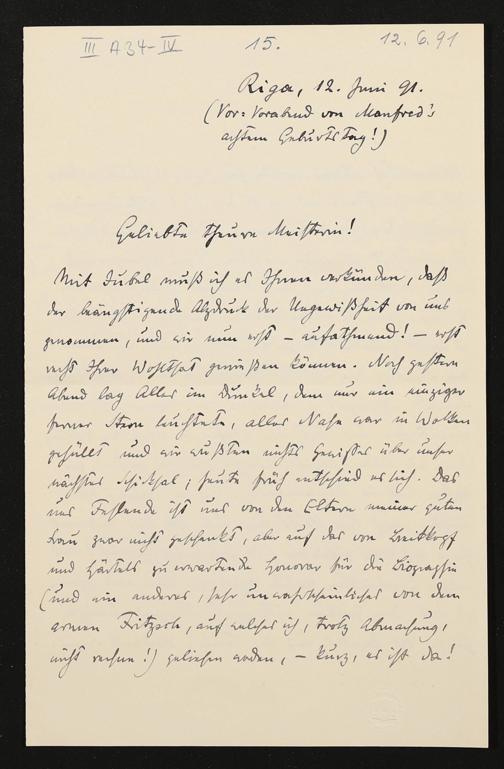 III A34-IV 15. 12. 6. 91
Riga, 12. Juni 91.
(Vor-Vorabend von Manfred's
achtem Geburtstag!)
Geliebte theure Meisterin!
Mit Jubel muß ich es Ihnen verkünden, daß
der beängstigende Alpdruck der Ungewißheit von uns
genommen, und wir nun erst – aufathmend! – erst
recht Ihrer Wohlthat genießen können. Noch gestern
Abend lag Alles im Dunkel, dem nur ein einziger
ferner Stern leuchtete, alles Nahe war in Wolken
gehüllt und wir wußten nichts Gewisses über unser
nächstes Schicksal; heute früh entschied es sich. Das
uns Fehlende ist uns von den Eltern meiner guten
Frau zwar nicht geschenkt, aber auf das von Breitkopf
und Härtels zu erwartende Honorar für die Biographie
(und ein anderes, sehr unwahrscheinliches von dem
armen Fritzsch, auf welches ich, trotz Abmachung,
nicht rechne!) geliehen worden, – kurz, es ist da!